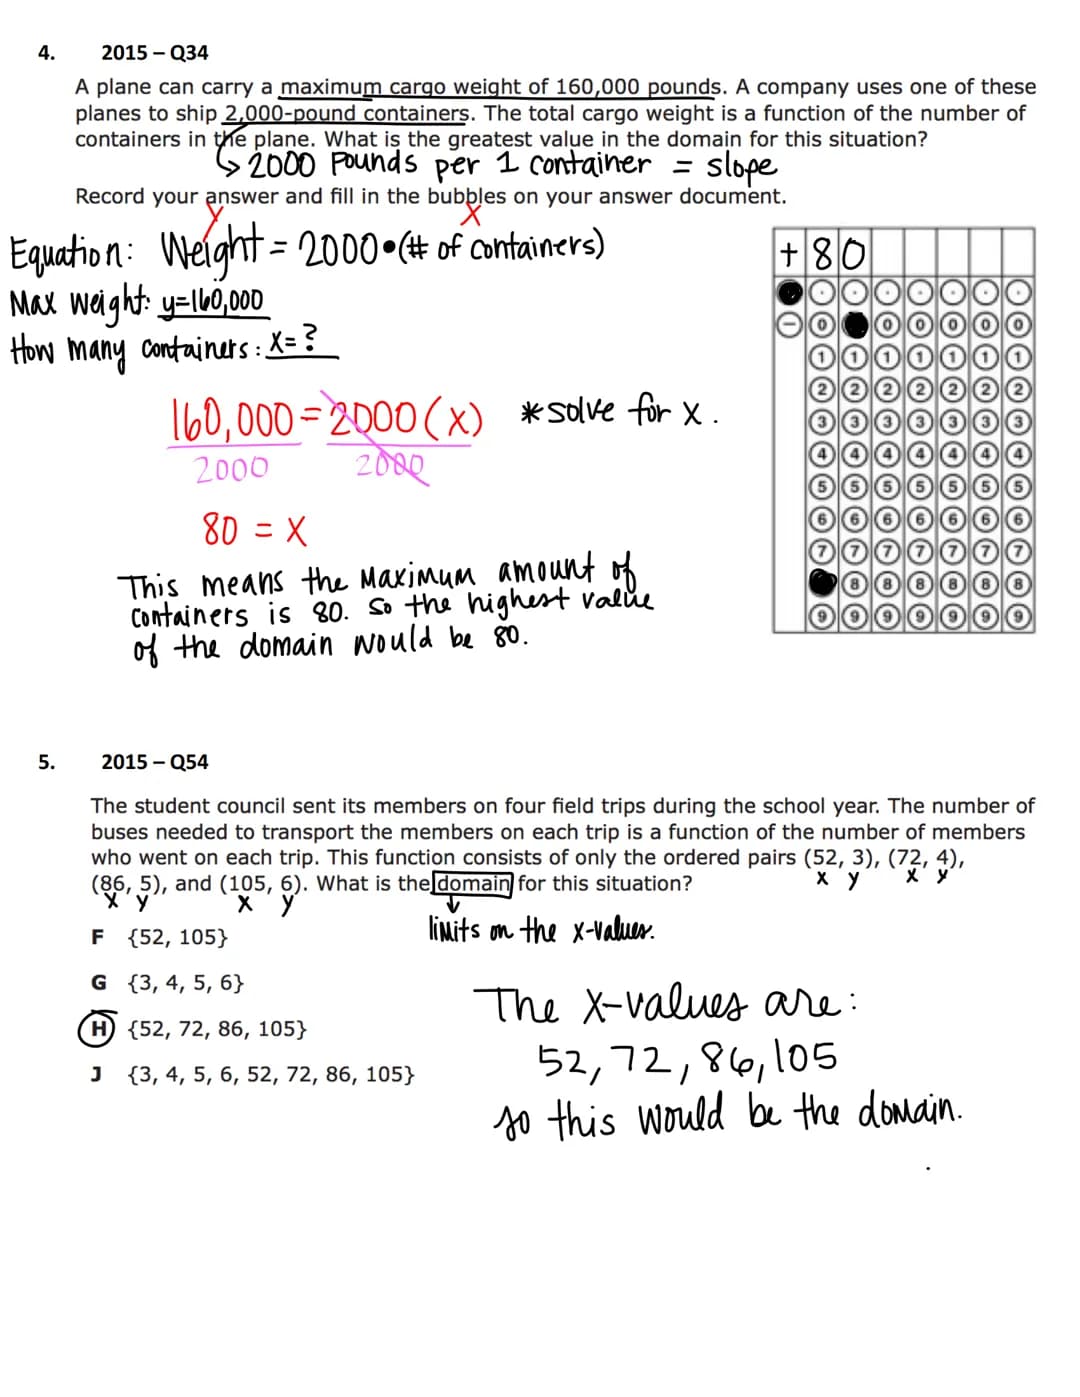 4. 2015 – Q34
A plane can carry a maximum cargo weight of 160,000 pounds. A company uses one of these
planes to ship 2,000-pound containers. The total cargo weight is a function of the number of
containers in the plane. What is the greatest value in the domain for this situation?
2000 Pounds per 1 container = slope
Record your answer and fill in the bubbles on your answer document.
y x
Equation: Weight = 2000•(# of containers)
+ 8 0
Max weight: y=160,000
How many containers: x=?
160,000 = 2000(x) *solve for x.
2000 2000
80 = x
This means the maximum amount of
containers is 80. So the highest value
of the domain would be 80.
. . . . . . .
– 0 0 0 0 0 0
1 1 1 1 1 1 1
2 2 2 2 2 2 2
3 3 3 3 3 3 3
4 4 4 4 4 4 4
5 5 5 5 5 5 5
6 6 6 6 6 6 6
7 7 7 7 7 7 7
8 8 8 8 8 8
9 9 9 9 9 9 9
5. 2015 – Q54
The student council sent its members on four field trips during the school year. The number of
buses needed to transport the members on each trip is a function of the number of members
who went on each trip. This function consists of only the ordered pairs (52, 3), (72, 4),
x y x y
(86, 5), and (105, 6). What is the domain for this situation?
x y x y
limits on the x-values.
F {52, 105}
G {3, 4, 5, 6}
H {52, 72, 86, 105}
J {3, 4, 5, 6, 52, 72, 86, 105}
The x-values are:
52, 72, 86, 105
so this would be the domain.